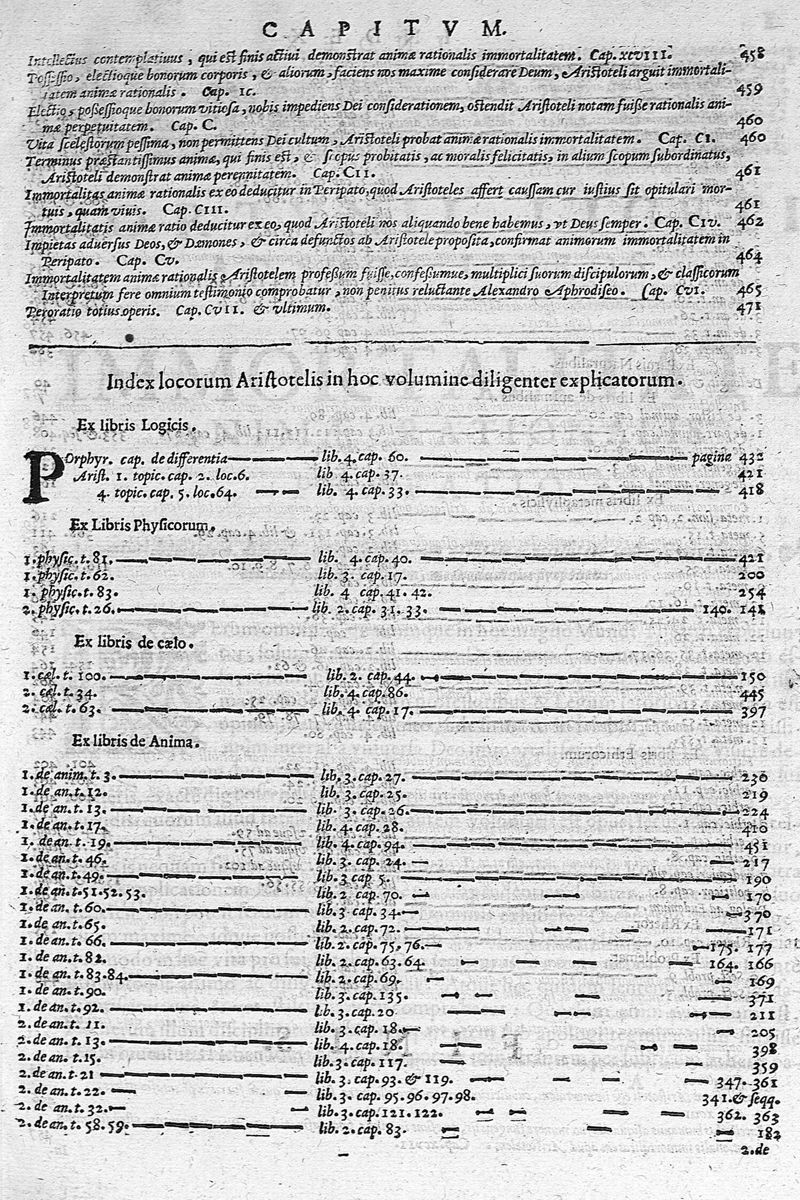 CAPITVM.
Intellectus contemplatiuus, qui est finis actiui demonstrat animæ rationalis immortalitatem. Cap. xcvIII. 458
Possessio, electioque bonorum corporis, & aliorum, faciens nos maxime considerare Deum, Aristoteli arguit immortali-
tatem animæ rationalis. Cap. Ic. 459
Electio, poßessioque bonorum vitiosa, nobis impediens Dei considerationem, ostendit Aristoteli notam fuiße rationalis ani-
mæ perpetuitatem. Cap. C. 460
Vita scelestorum pessima, non permittens Dei cultum, Aristoteli probat animæ rationalis immortalitatem. Cap. CI. 460
Terminus præstantissimus animæ, qui finis est, & scopus probitatis, ac moralis felicitatis, in alium scopum subordinatus,
Aristoteli demonstrat animæ perennitatem. Cap. CII. 461
Immortalitas animæ rationalis ex eo deducitur in Peripato, quod Aristoteles affert caussam cur iustius sit opitulari mor-
tuis, quam viuis. Cap. CIII. 461
Immortalitatis animæ ratio deducitur ex eo, quod Aristoteli nos aliquando bene habemus, vt Deus semper. Cap. CIv. 462
Impietas aduersus Deos, & Dæmones, & circa defunctos ab Aristotele proposita, confirmat animorum immortalitatem in
Peripato. Cap. Cv. 464
Immortalitatem animæ rationalis Aristotelem profeßum fuisse, confeßumue, multiplici suorum discipulorum, & classicorum
Interpretum fere omnium testimonio comprobatur, non penitus reluctante Alexandro Aphrodiseo. Cap. CvI. 465
Peroratio totius operis. Cap. CvII. & vltimum. 471
Index locorum Aristotelis in hoc volumine diligenter explicatorum.
Ex libris Logicis.
POrphyr. cap. de differentia lib. 4. cap. 60. pagina 432
Arist. 1. topic. cap. 2. loc. 6. lib 4. cap. 37. 421
4. topic. cap. 5. loc. 64. lib. 4. cap. 33. 418
Ex Libris Physicorum.
1. physic. t. 81. lib. 4. cap. 40. 421
1. physic. t. 62. lib. 3. cap. 17. 200
1. physic. t. 83. lib. 4 cap. 41. 42. 254
2. physic. t. 26. lib. 2. cap. 31. 33. 140. 141
Ex libris de cælo.
1. cæl. t. 100. lib. 2. cap. 44. 150
2. cæl. t. 34. lib. 4. cap. 86. 445
2. cæl. t. 63. lib. 4. cap. 17. 397
Ex libris de Anima.
1. de anim. t. 3. lib. 3. cap. 27. 230
1. de an. t. 12. lib. 3. cap. 25. 219
1. de an. t. 13. lib. 3. cap. 26. 224
1. de an. t. 17. lib. 4. cap. 28. 410
1. de an. t. 19. lib. 4. cap. 94. 451
1. de an. t. 46. lib. 3. cap. 24. 217
1. de an. t. 49. lib. 3 cap 5. 190
1. de an. t. 51. 52. 53. lib. 2 cap. 70. 170
1. de an. t. 60. lib. 3 cap. 34. 370
1. de an. t. 65. lib. 2. cap. 72. 171
1. de an. t. 66. lib. 2. cap. 75. 76. 175. 177
1. de an. t. 82. lib. 2. cap. 63. 64. 164. 166
1. de an. t. 83. 84. lib. 2. cap. 69. 169
1. de an. t. 90. lib. 3. cap. 135. 371
1. de an. t. 92. lib. 3. cap. 20 211
2. de an. t. 11. lib. 3. cap. 18. 205
2. de an. t. 13. lib. 4. cap. 18. 398
2. de an. t. 15. lib. 3. cap. 117. 359
2. de an. t. 21 lib. 3. cap. 93. & 119. 347. 361
2. de an. t. 22. lib. 3. cap. 95. 96. 97. 98. 341. & seqq.
2. de an. t. 32. lib. 3. cap. 121. 122. 362. 363
2. de an. t. 58. 59. lib. 2. cap. 83. 182
2. de